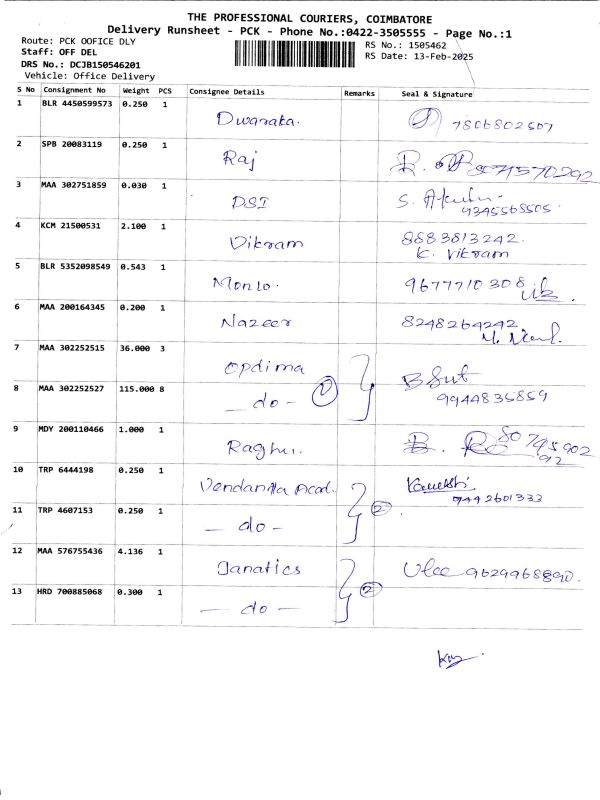 THE PROFESSIONAL COURIERS, COIMBATORE
Delivery Runsheet - PCK - Phone No.:0422-3505555 - Page No.:1
Route: PCK OOFICE DLY
RS No.: 1505462
Staff: OFF DEL
RS Date: 13-Feb-2025
DRS No.: DCJB150546201
Vehicle: Office Delivery
S No Consignment No Weight PCS Consignee Details Remarks Seal & Signature
1 BLR 4450599573 0.250 1 Dwaraka. 7806802507
2 SPB 20083119 0.250 1 Raj
3 MAA 302751859 0.030 1 DSI S.
9345568505.
4 KCM 21500531 2.100 1 Vikram 8883813242.
K. Vikram
5 BLR 5352098549 0.543 1 9677710308
6 MAA 200164345 0.200 1 Nazeer 8248264242
7 MAA 302252515 36.000 3 Opdima
8 MAA 302252527 115.000 8 — do - 9944835859
9 MDY 200110466 1.000 1 Raghu.
10 TRP 6444198 0.250 1 Vendanta Acad.
9442601333
11 TRP 4607153 0.250 1 — do - 2
12 MAA 576755436 4.136 1 Janatics 9629968890.
13 HRD 700885068 0.300 1 — do — 2